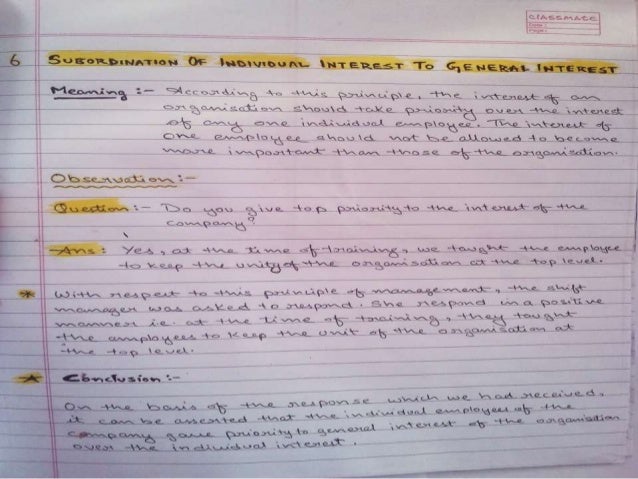 classmate
Date :
Page :
6 SUBORDINATION OF INDIVIDUAL INTEREST TO GENERAL INTEREST
Meaning :- According to this principle, the interest of an
organisation should take priority over the interest
of any one individual employee. The interest of
one employee should not be allowed to become
more important than those of the organisation.
Observation :-
Question :- Do you give top priority to the interest of the
company?
Ans : Yes, at the time of training, we taught the employee
to keep the unity of the organisation at the top level.
* With respect to this principle of management, the shift
manager was asked to respond. She respond in a positive
manner i.e. at the time of training, they taught
the employees to keep the unit of the organisation at
the top level.
* Conclusion :-
On the basis of the response which we had received,
it can be asserted that the individual employees of the
company gave priority to general interest of the organisation
over the individual interest.